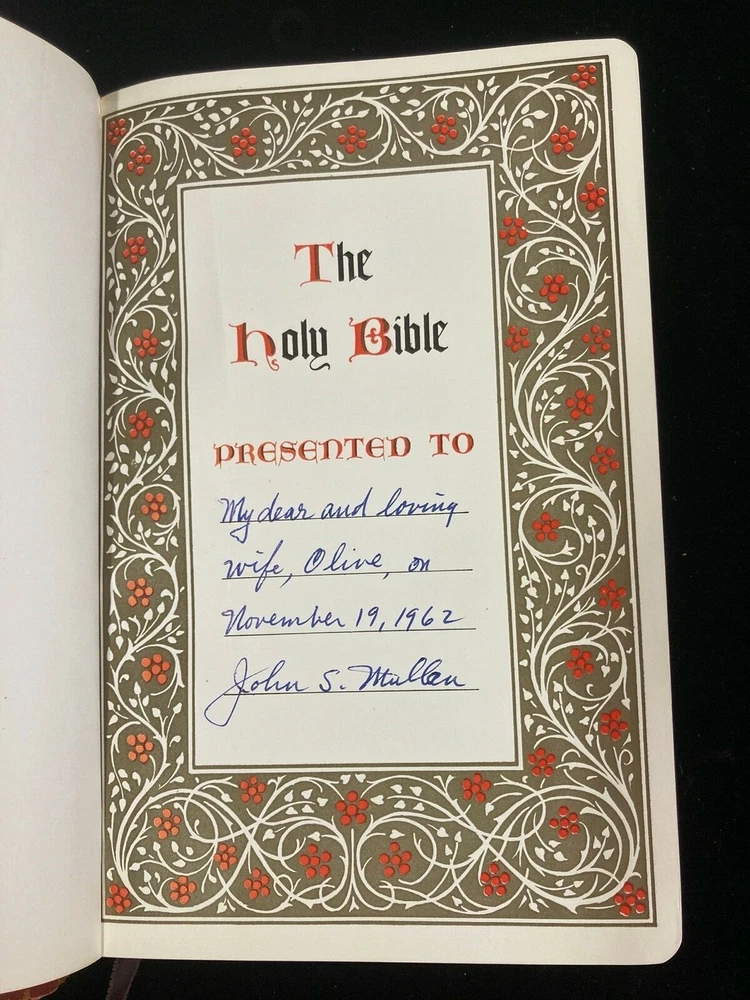 The
Holy Bible
PRESENTED TO
My dear and loving
wife, Olive, on
November 19, 1962
John S. Mullen